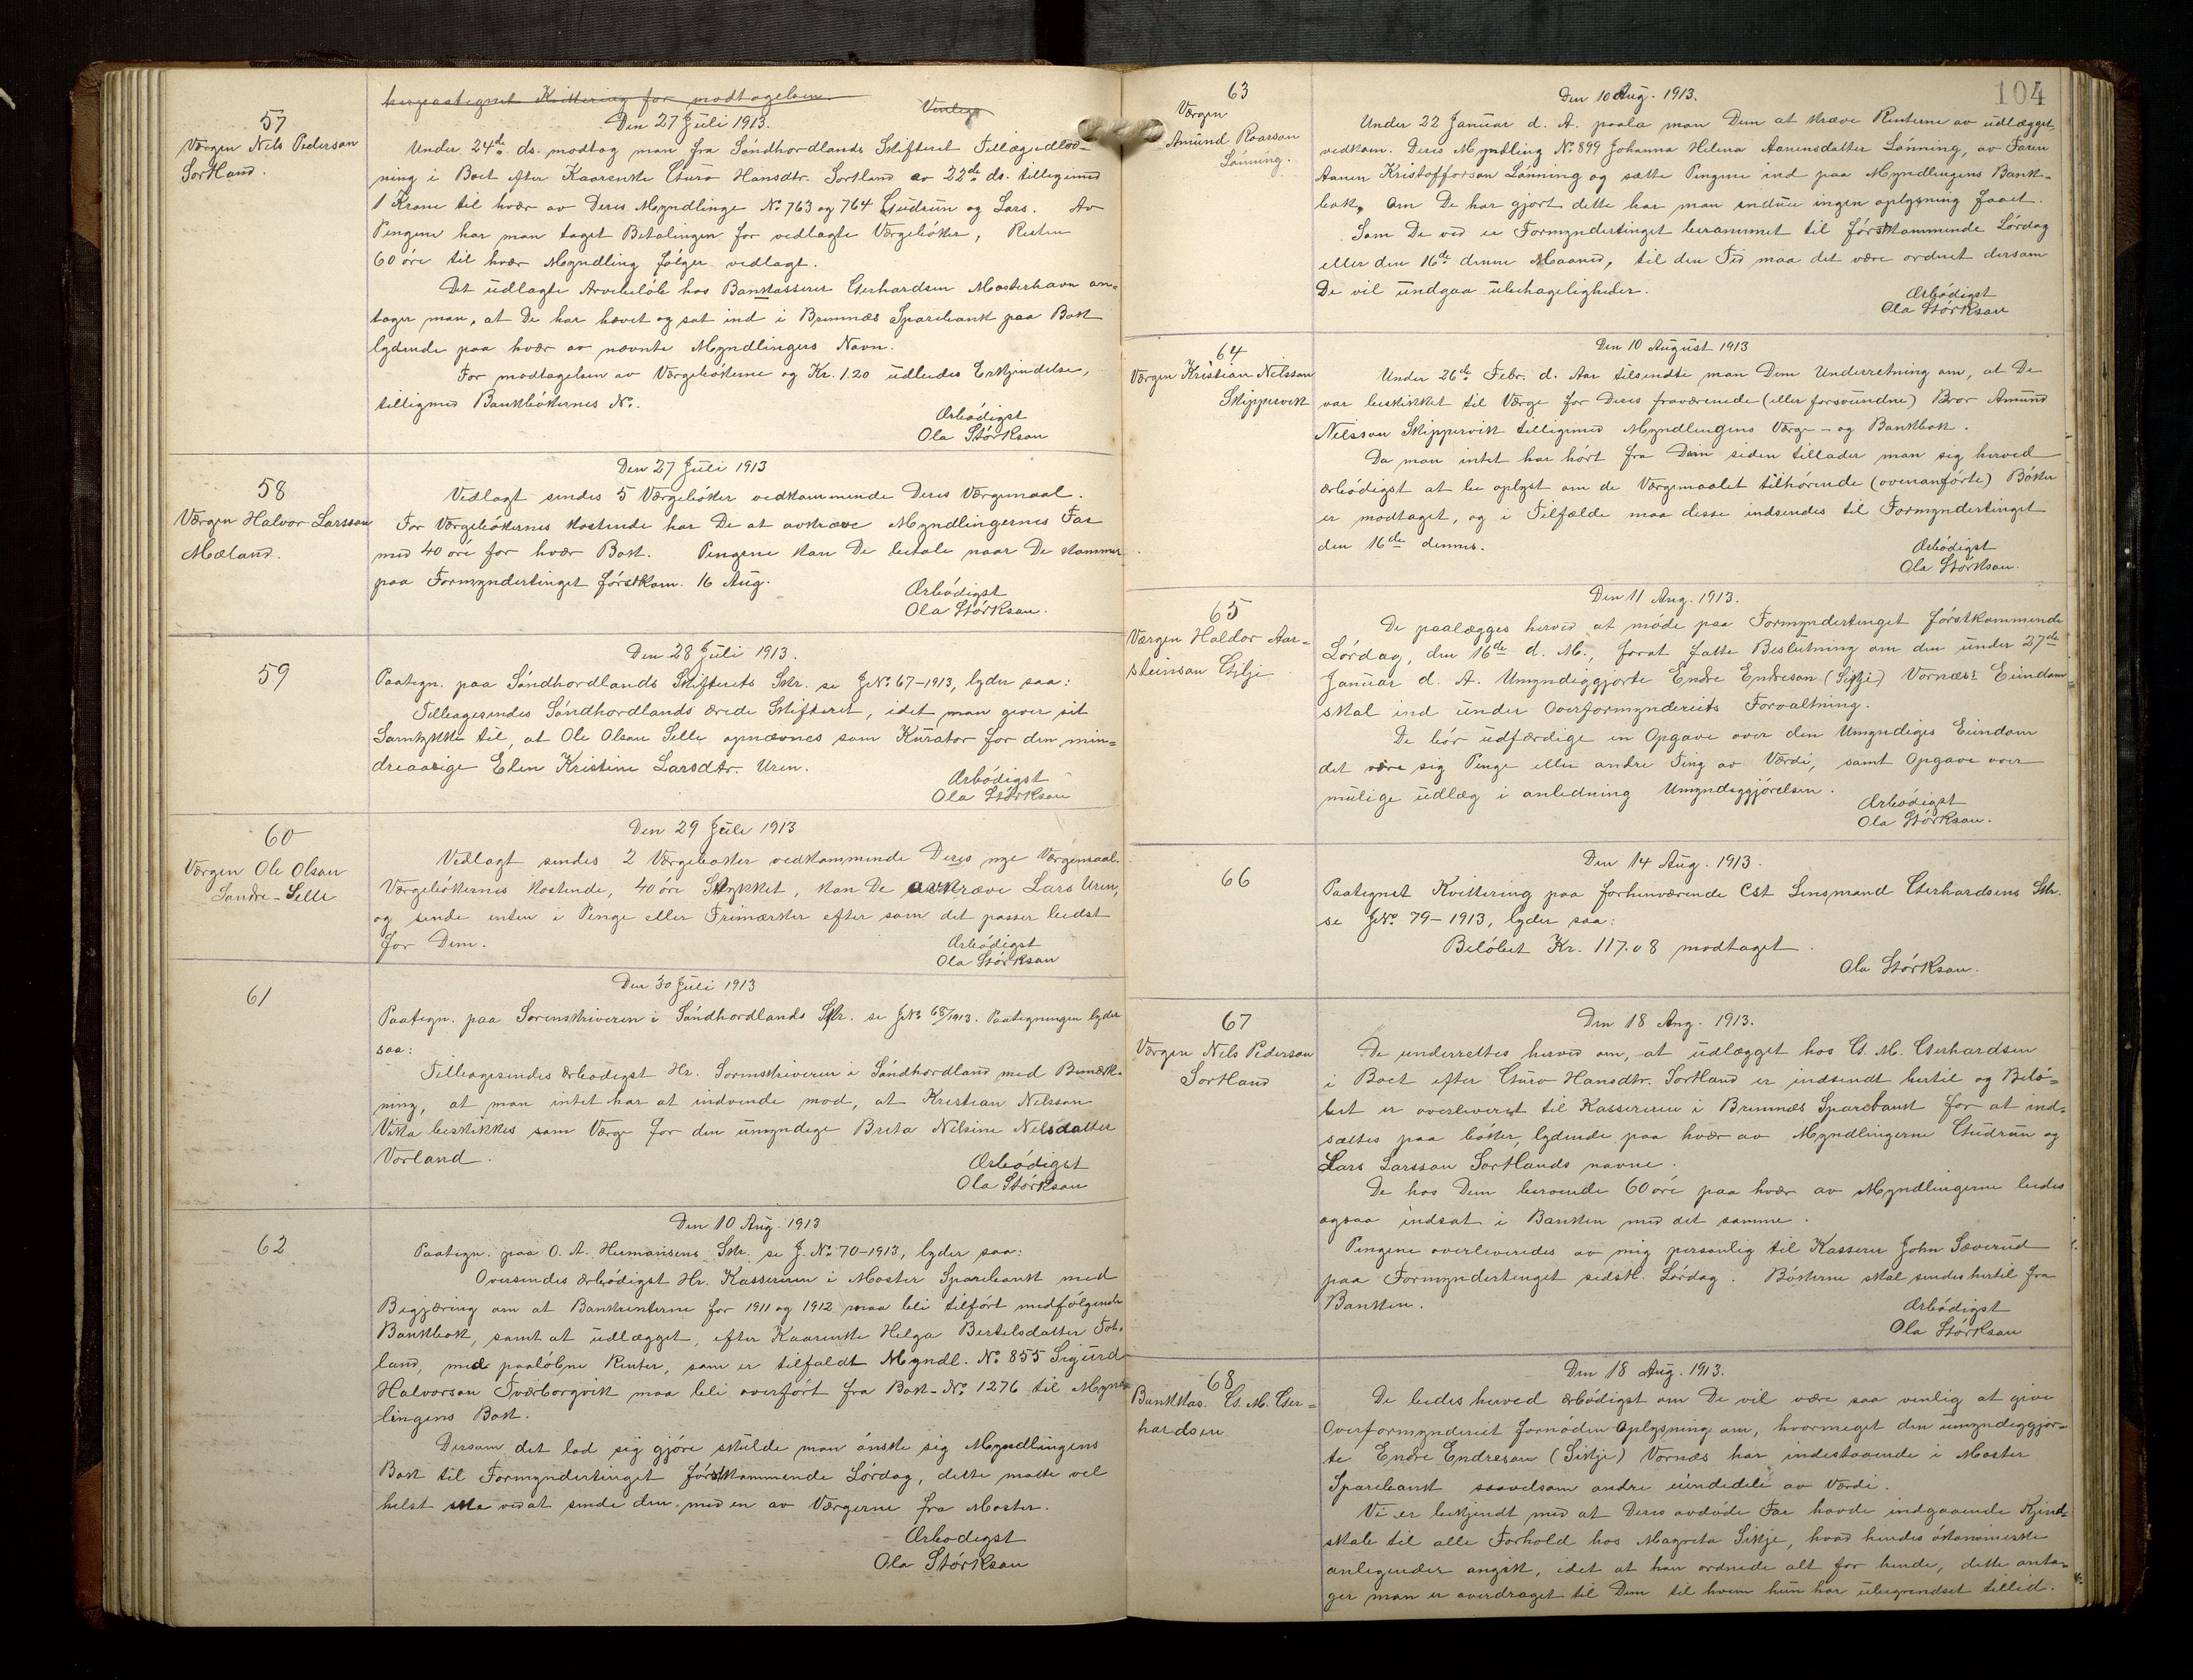 hergaategnet Kvittering for modtagelsen. Venligs
57
Værgen Nels Pederson
Sortland.
Den 27 Juli 1913.
Under 24de ds. modtog man fra Söndhordlands Skifteret Tillægsudlod-
ning i Boet efter Kaarenke Guro Hansdtr. Sortland av 22de ds. tilligemed
1 Krone til hvær av Deres Myndlinge No 763 og 764 Gudrun og Lars. Av
Pengene har man taget Betalingen for vedlagte Værgebøker, Resten
60 øre til hvær Myndling følger vedlagt.
Det udlagte Arvebeløb hos Bankkasserer Gerhardsen Mosterhavn an-
tager man, at De har hævet og sat ind i Bremnæs Sparebank paa Bok
lydende paa hvær av nævnte Myndlingers Navn.
For modtagelsen av Værgebøkerne og Kr. 1.20 udbedes Erkjendelse,
tilligemed Bankbøkernes No.
Ærbødigst
Ola Størkson
58
Værgen Halvor Larsson
Mæland.
Den 27 Juli 1913
Vedlagt sendes 5 Værgebøker vedkommende Deres Værgemaal.
For Værgebøkernes kostende har De at avkræve Myndlingernes Far
med 40 øre for hvær Bok. Pengene kan De betale naar De kommer
paa Formyndertinget førstkom. 16 Aug.
Ærbødigst
Ola Størkson.
59
Den 28 Juli 1913.
Paategn. paa Söndhordlands Skifterets Skr. se J.No. 67-1913, lyder saa:
Tilbagesendes Söndhordlands ærede Skifteret, idet man giver sit
Samtykke til, at Ole Olson Selle opnævnes som Kurator for den min-
dreaarige Elen Kristine Larsdtr. Uren.
Ærbødigst
Ola Størkson
60
Værgen Ole Olson
Søndre-Selle
Den 29 Juli 1913
Vedlagt sendes 2 Værgebøker vedkommende Deres nye Værgemaal.
Værgebøkernes kostende, 40 øre Stykket, kan De avkræve Lars Uren,
og sende enten i Penge eller Frimærker efter som det passer bedst
for Dem.
Ærbødigst
Ola Størkson
61
Den 30 Juli 1913
Paategn. paa Sorenskriveren i Söndhordlands Skr. se J.No 68/1913. Paategningen lyder
saa:
Tilbagesendes ærbødigst Hr. Sorenskriveren i Söndhordland med Bemærk-
ning, at man intet har at indvende mod, at Kristian Nelsson
Vika beskikkes som Værge for den umyndige Brita Nelsine Nelsdatter
Vorland.
Ærbødigst
Ola Størkson
62
Den 10 Aug. 1913
Paategn. paa O. A. Hermansens Skr. se J. No. 70-1913, lyder saa:
Oversendes ærbødigst Hr. Kassereren i Moster Sparebank med
Begjæring om at Bankrenterne for 1911 og 1912 maa bli tilført medfølgende
Bankbok, samt at udlægget, efter Kaarenke Helga Bertelsdatter Tot-
land, med paaløbne Renter, som er tilfaldt Myndl. No. 855 Sigurd
Halvorson Tværborgvik maa bli overført fra Bok-No. 1276 til Mynd-
lingens Bok.
Dersom det lod sig gjøre skulde man ønske sig Myndlingens
Bok til Formyndertinget førstkommende Lørdag, dette matte vel
helst ske ved at sende den med en av Værgerne fra Moster.
Ærbødigst
Ola Størkson
104
63
Værgen
Amund Roarson
Lønning.
Den 10 Aug. 1913.
Under 22 Januar d. A. paala man Dem at kræve Renterne av udlægget,
vedkom. Deres Myndling No 899 Johanna Helena Aanensdatter Lønning, av Faren
Aanen Kristofferson Lønning og sætte Pengene ind paa Myndlingens Bank-
bok. Om De har gjort dette har man endnu ingen oplysning faaet.
Som De ved er Formyndertinget berammet til førstkommende Lørdag
eller den 16de denne Maaned, til den Tid maa det være ordnet dersom
De vil undgaa ubehageligheder.
Ærbødigst
Ola Størkson
64
Værgen Kristian Nilsson
Skippervik
Den 10 August 1913
Under 26de Febr. d. Aar tilsendte man Dem Underretning om, at De
var beskikket til Værge for Deres fraværende (eller forsvundne) Bror Amund
Nelsson Skippervik tilligemed Myndlingens Værge- og Bankbok.
Da man intet har hørt fra Dem siden tillader man sig herved
ærbødigst at be oplyst om de Værgemaalet tilhørende (ovenanførte) Bøker
er modtaget, og i Tilfælde maa disse indsendes til Formyndertinget
den 16de dennes.
Ærbødigst
Ola Størkson.
65
Værgen Haldor Aar-
steinson Gilje
Den 11 Aug. 1913.
De paalægges herved at møde paa Formyndertinget førstkommende
Lørdag, den 16de d. M., forat fatte Beslutning om den under 27de
Januar d. A. Umyndiggjorte Endre Endreson (Sikje) Vornæs's Eiendom
skal ind under Overformynderiets Forvaltning.
De bør udfærdige en Opgave over den Umyndiges Eiendom
det være sig Penge eller andre Ting av Værdi, samt Opgave over
mulige udlæg i anledning Umyndiggjørelsen.
Ærbødigst
Ola Størkson.
66
Den 14 Aug. 1913.
Paategnet Kvittering paa forhenværende Cst Lensmand Gerhardsens Skr.
se J.No. 79-1913, lyder saa:
Beløbet Kr. 117.08 modtaget.
Ola Størkson.
67
Værgen Nels Pederson
Sortland
Den 18 Aug. 1913.
De underrettes herved om, at udlægget hos G. M. Gerhardsen
i Boet efter Guro Hansdtr. Sortland er indsendt hertil og Belø-
bet er overleveret til Kassereren i Bremnæs Sparebank for at ind-
sættes paa bøker, lydende paa hvær av Myndlingerne Gudrun og
Lars Larsson Sortlands navne.
De hos Dem beroende 60 øre paa hvær av Myndlingerne bedes
ogsaa indsat i Banken med det samme.
Pengene overleveredes av mig personlig til Kasserer John Sæverud
paa Formyndertinget sidstl. Lørdag. Bøkerne skal sendes hertil fra
Banken.
Ærbødigst
Ola Størkson
68
Bankkas. G. M. Ger-
hardsen
Den 18 Aug. 1913.
De bedes herved ærbødigst om De vil være saa venlig at give
Overformynderiet fornøden Oplysning om, hvormeget den umyndiggjor-
te Endre Endreson (Sikje) Vornæs har indestaaende i Moster
Sparebank saavelsom andre eiendele av Værdi.
Vi er bekjendt med at Deres avdøde Far havde indgaaende Kjend-
skab til alle Forhold hos Magreta Sikje, hvad hendes økonomiske
anliggender angik, idet at han ordnede alt for hende, dette anta-
ger man er overdraget til Dem til hvem hun har ubegrendset tillid.